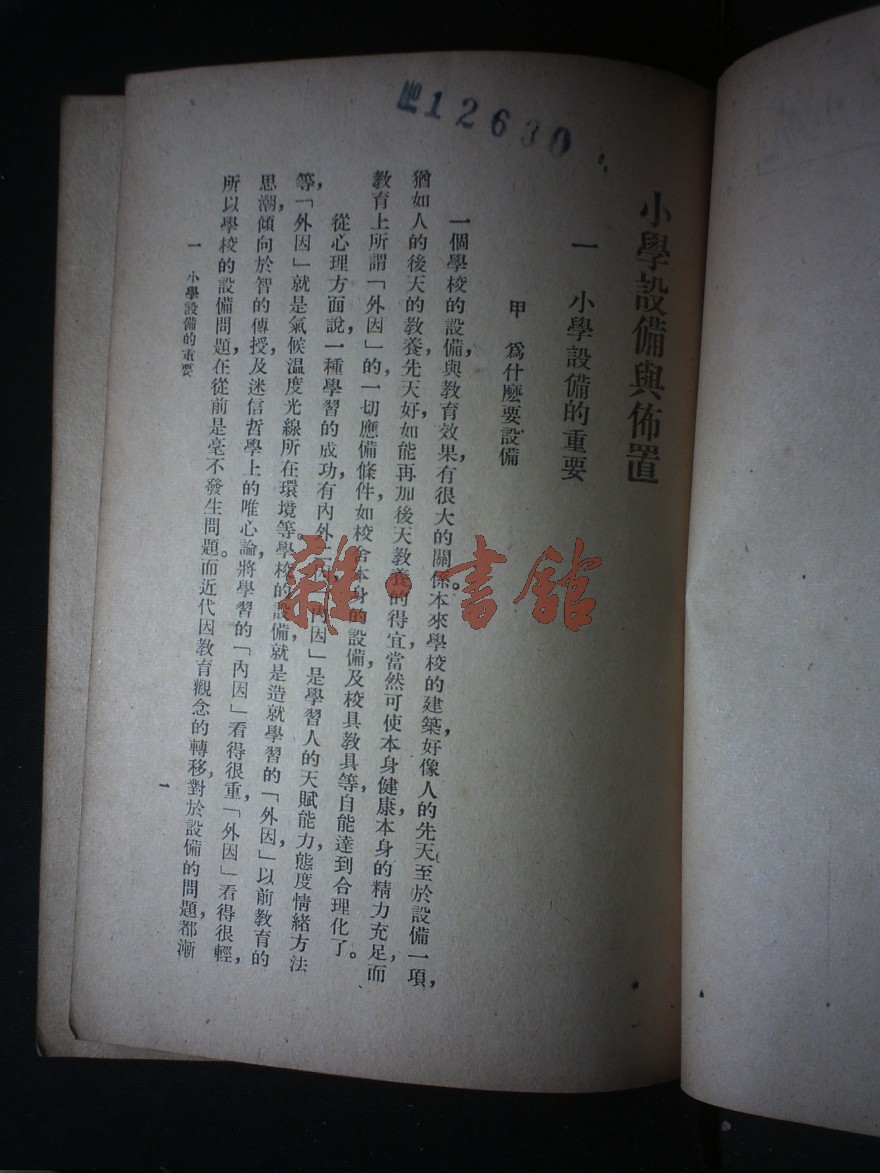 №12630
小學設備與佈置
一　小學設備的重要
甲　爲什麼要設備
一個學校的設備，與教育效果有很大的關係。本來學校的建築，好像人的先天；至於設備一項，
猶如人的後天的教養，先天好，如能再加後天教養的得宜，當然可使本身健康，本身的精力充足，而
教育上所謂「外因」的，一切應備條件，如校舍本身的設備，及校具教具等，自能達到合理化了。
從心理方面說，一種學習的成功，有內外二因，「內因」是學習人的天賦能力，態度情緒方法
等，「外因」就是氣候溫度光線所在環境等，學校的設備，就是造就學習的「外因」，以前教育的
思潮，傾向於智的傳授，及迷信哲學上的唯心論，將學習的「內因」看得很重，「外因」看得很輕，
所以學校的設備問題，在從前是毫不發生問題。而近代因教育觀念的轉移，對於設備的問題，都漸
一　小學設備的重要
一
雜·書館